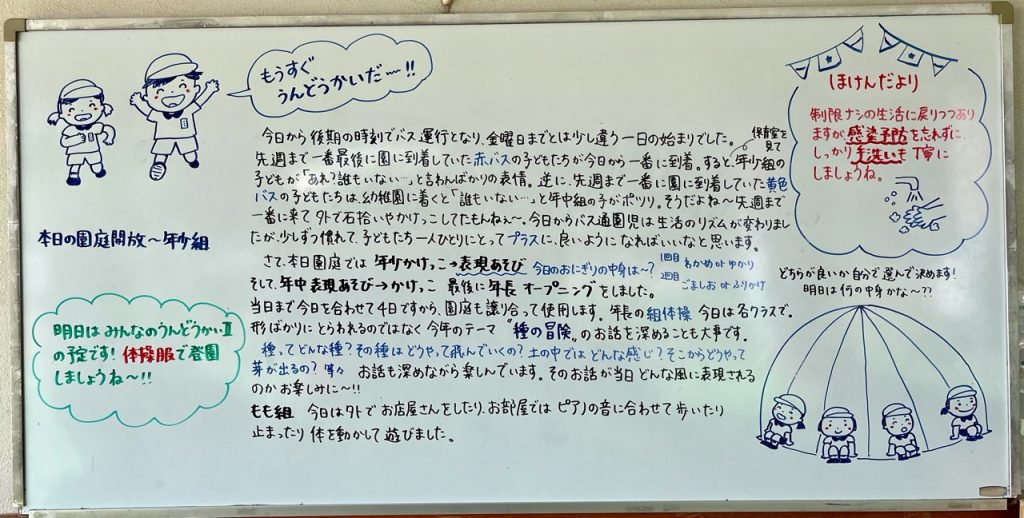 もうすぐ
うんどうかいだー!!
今日から後期の時刻でバス運行となり、金曜日までとは少し違う一日の始まりでした。
保育室を見て
先週まで一番最後に園に到着していた赤バスの子どもたちが今日から一番に到着。すると、年少組の
子どもが「あれ?誰もいない…」と言わんばかりの表情。逆に、先週まで一番に園に到着していた黄色
バスの子どもたちは、幼稚園に着くと「誰もいない…」と年中組の子がポツリ。そうだよね〜先週まで
一番に来て外で石拾いやかけっこしてたもんねぇ〜。今日からバス通園児は生活のリズムが変わりまし
たが、少しずつ慣れて、子どもたち一人ひとりにとってプラスに、良いようになればいいなと思います。
さて、本日園庭では 年少かけっこ→表現あそび 今日のおにぎりの中身は〜?
1回目 わかめ or ゆかり
2回目 ごましお or ふりかけ
どちらが良いか自分で選んで決めます!
明日は何の中身かな〜??
そして、年中表現あそび→かけっこ 最後に年長オープニングをしました。
当日まで今日を合わせて4日ですから、園庭も譲り合って使用します。年長の組体操 今日は各クラスで。
形ばかりにとらわれるのではなく今年のテーマ〝種の冒険〟のお話を深めることも大事です。
種ってどんな種?その種はどうやって飛んでいくの?土の中ではどんな感じ?そこからどうやって
芽が出るの?等々 お話も深めながら楽しんでいます。そのお話が当日どんな風に表現される
のかお楽しみに〜!!
もも組 今日は外でお店屋さんをしたり、お部屋ではピアノの音に合わせて歩いたり
止まったり体を動かして遊びました。
本日の園庭開放〜年少組
明日はみんなのうんどうかいⅡ
の予定です!体操服で登園
しましょうね〜!!
ほけんだより
制限ナシの生活に戻りつつあり
ますが、感染予防を忘れずに、
しっかり手洗いも丁寧に
しましょうね。